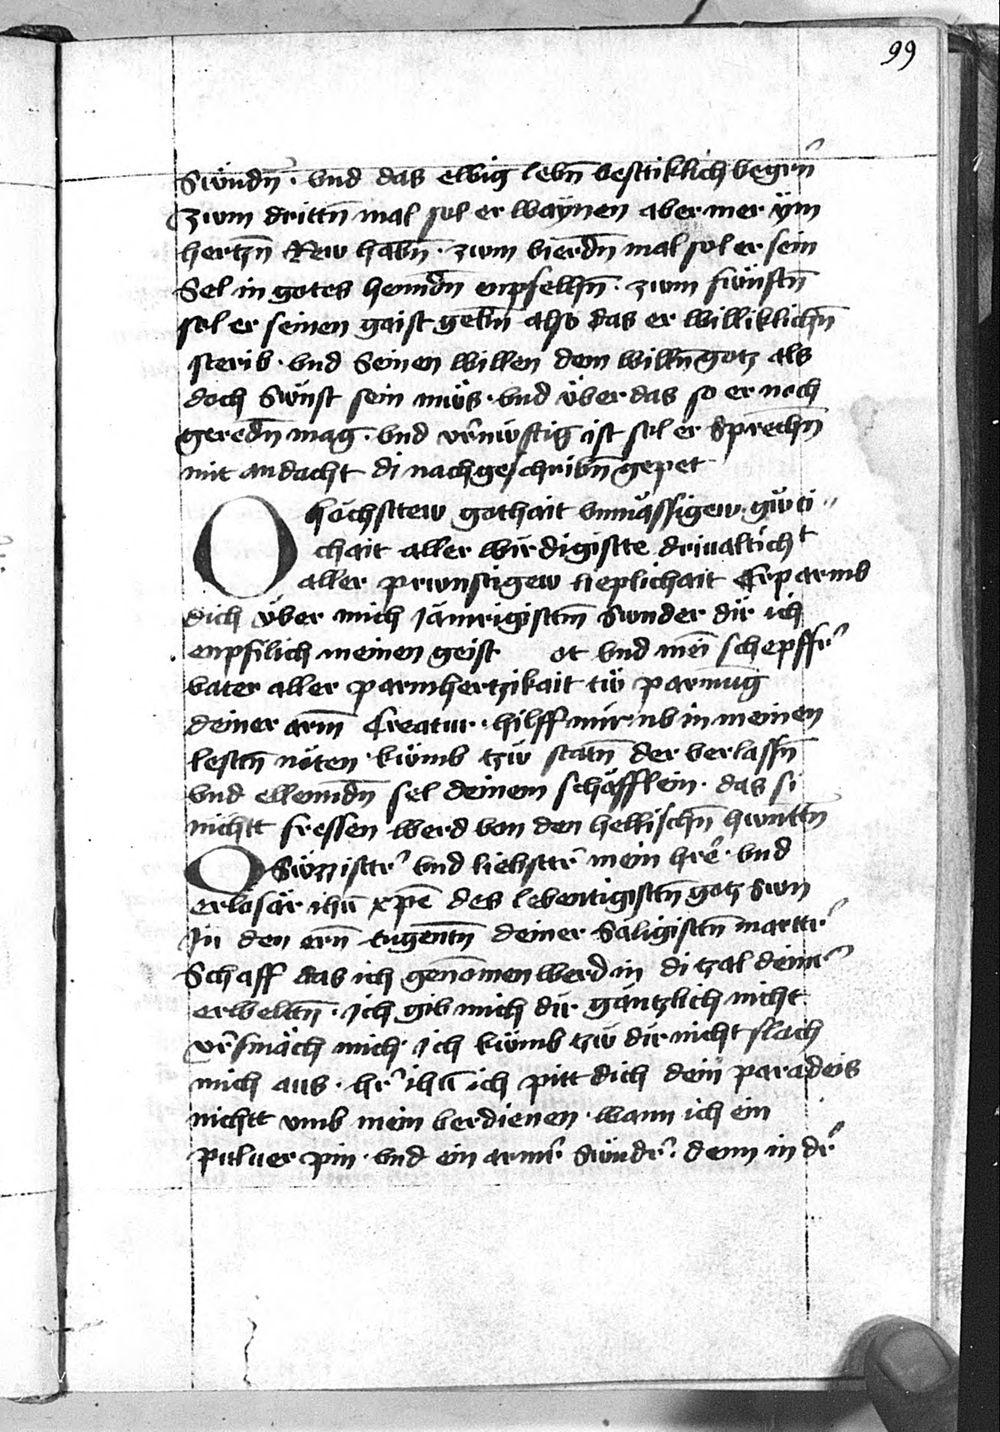 99
Sündn̄ · vnd das ewig lebn̄ vesttiklich begern̄
Zwm drittn̄ mal sol er waynen aber mer ym
hertzn̄ Rew habn̄ · zwm vierdn̄ mal sol er sein
Sel in gotes henndn̄ enpfelhn̄ · zwm fwnftn̄
sol er seinen gaist gebm̄ also das er williklichn̄
sterib · vnd Seinen willen dem willn̄ gotz als
doch Swnst sein mẅs · vnd über das so er noch
geredn̄ mag · vnd vr̄nwftig ist sol er Sprechn̄
mit andacht di nachgeschribn̄ gepet
O höchsttew gothait vnmässigew gẅti
chait aller wirdigistte driualticht
aller prwnstigew lieplichait Erparmb
dich über mich Jämrigisttm̄ Swnder dir ich
enpfilich meinen geist ot vnd mei᷑ schepffr᷑
vater aller parmhertzikait tẅ parmūg
deiner arm̄ Creatur · hilff mir nb in meinen
lestn̄ nöten · kẅmb tzẅ statn̄ der verlassn̄
vnd ellenndn̄ sel deinem schäfflein · das si
nichtt fressen werd von den hellischn̄ hwnttn̄
O Sẅzzisttr᷑ vnd liebsttr᷑ mein hr̄e · vnd
erlosär ihū xp̄e des lebentigisttn̄ gotz Swn
In den ern̄ tugentn̄ deiner Säligisttn̄ marttr᷑
Schaff das ich genomen werd in di tzal deinr᷑
erweltn̄ · Ich gib mich dir gäntzlich nicht
vr̄smäch mich · Ich kẅmb tzẅ dir nicht slach
mich aus · hr᷑ ihū ich pitt dich dein paradeis
nichtt vmb mein verdienen · wann ich ein
pulver pin · vnd ein armr᷑ Sẅndr᷑ · denn in dr᷑